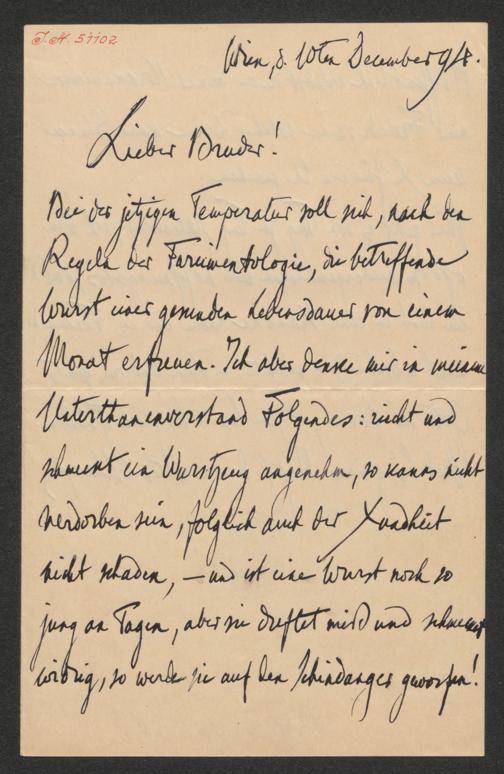 I.N. 51102
Wien, d. 10ten December 918.
Lieber Bruder!
Bei der jetzigen Temperatur soll sich, nach den
Regeln der Farcimentologie, die betreffende
Wurst einer gesunden Lebensdauer von einem
Monat erfreuen. Ich aber denke mir in meinem
Unterthanenverstand Folgendes: riecht und
schmeckt ein Wurstzeug angenehm, so kanns nicht
verdorben sein, folglich auch der Xundheit
nicht schaden, – und ist eine Wurst noch so
jung an Tagen, aber sie duftet mies und schmeckt
widrig, so werde sie auf den Schindanger geworfen!